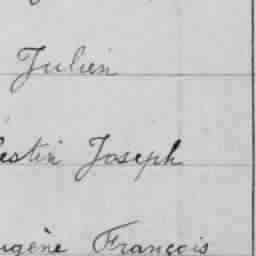 Julien
estin Joseph
ugène François